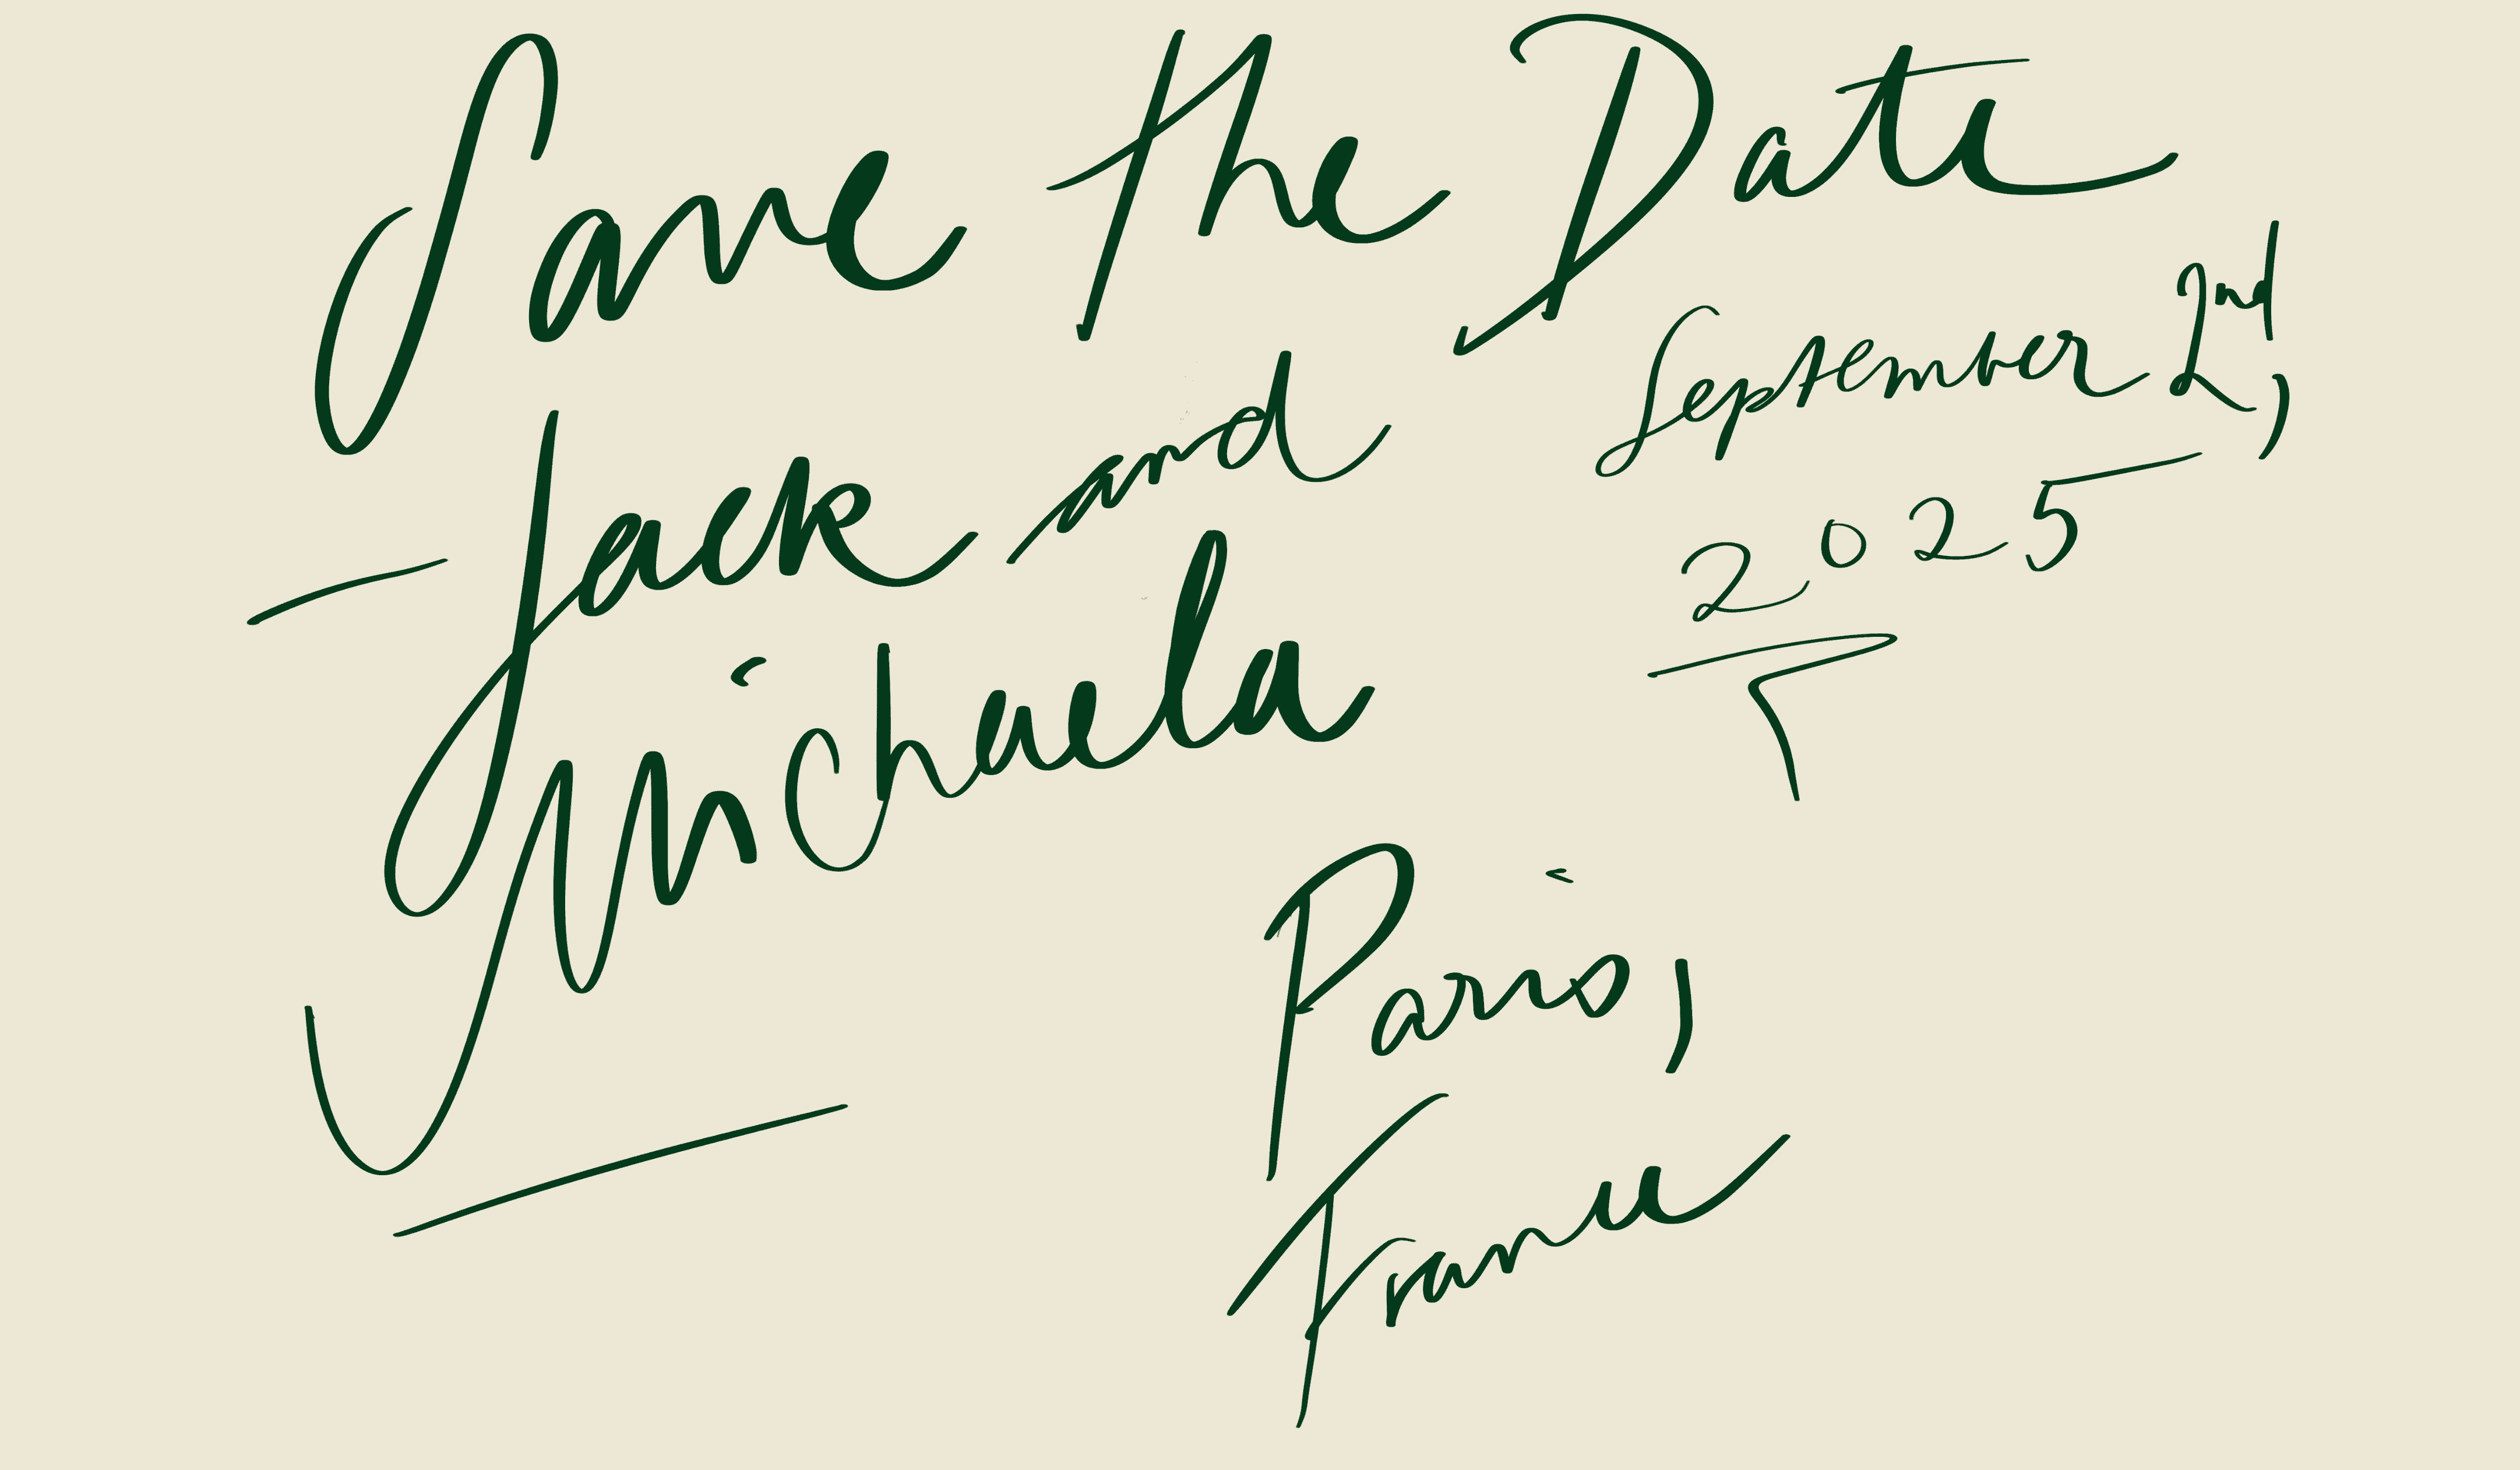 Save the Date
September 2nd,
2025
Jack and
Michaela
Paris,
France